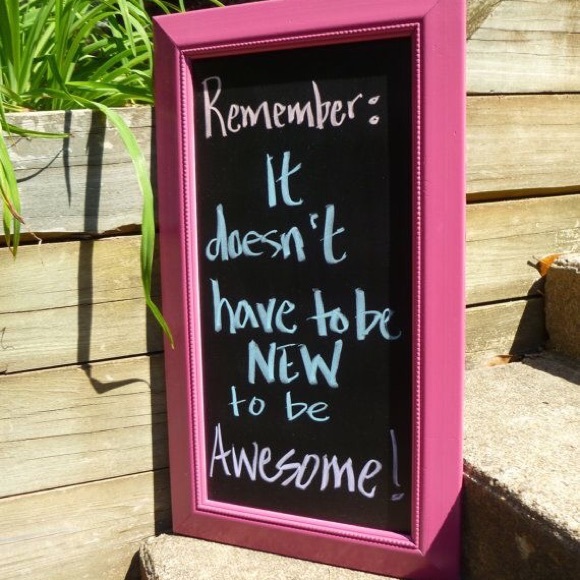 Remember:
It
doesn't
have to be
NEW
to be
Awesome!